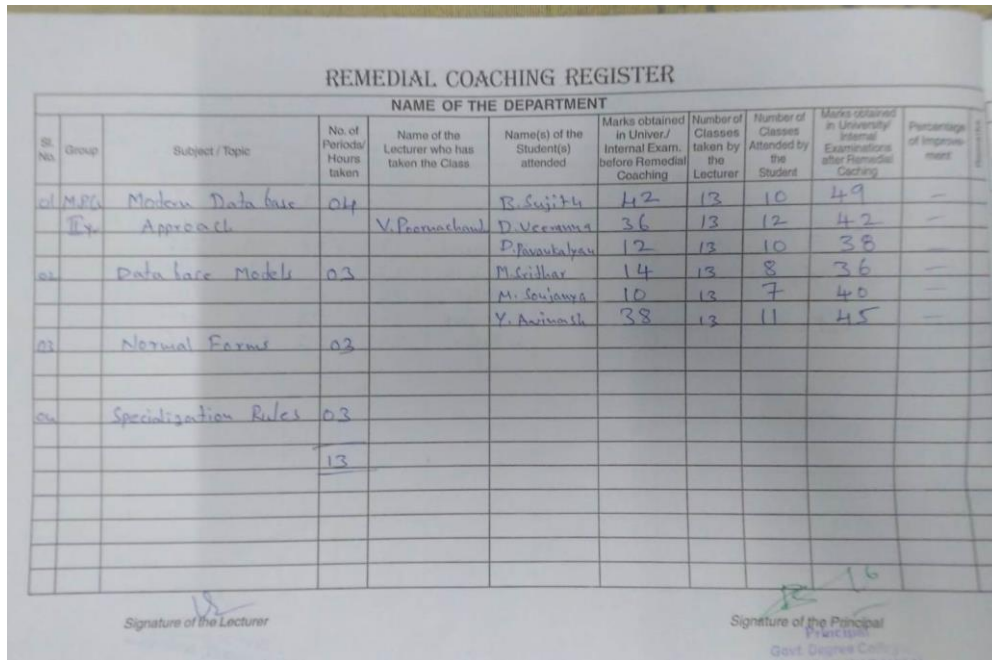 REMEDIAL COACHING REGISTER
NAME OF THE DEPARTMENT
Sl. No. Group Subject / Topic No. of Periods/ Hours taken Name of the Lecturer who has taken the Class Name(s) of the Student(s) attended Marks obtained in Univer./ Internal Exam. before Remedial Coaching Number of Classes taken by the Lecturer Number of Classes Attended by the Student Marks obtained in University/ Internal Examinations after Remedial Caching Percentage of Improve- ment
01 Modern Data base 04 B. Sujith 42 13 10 49 —
Approach V. Poornachand D. Veeranna 36 13 12 42 —
D. Pavankalyan 12 13 10 38
02 Data base Models 03 M. Sridhar 14 13 8 36 —
M. Soujanya 10 13 7 40 —
Y. Avinash 38 13 11 45 —
03 Normal Forms 03
04 Specialization Rules 03
13
Signature of the Lecturer Signature of the Principal
Principal
Govt. Degree